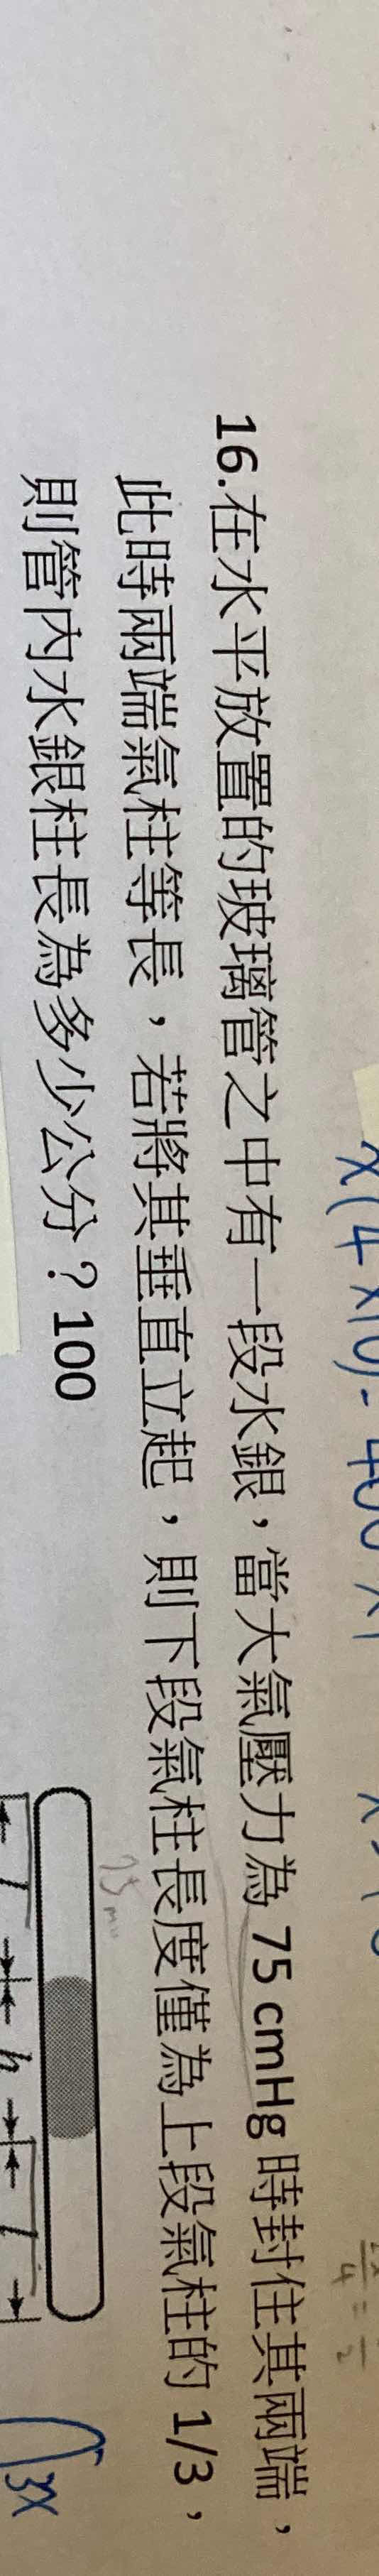 16.在水平放置的玻璃管之中有一段水銀，當大氣壓力為 75 cmHg 時封住其兩端，
此時兩端氣柱等長，若將其垂直立起，則下段氣柱長度僅為上段氣柱的 1/3，
則管內水銀柱長為多少公分？100
l h l
3x